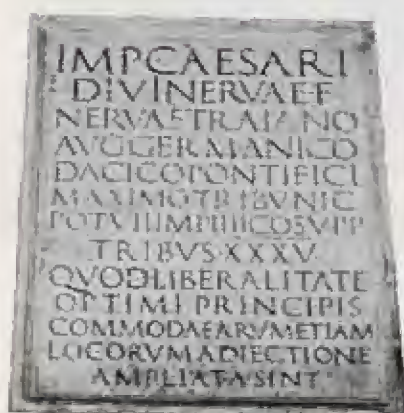 IMP CAESARI
DIVI NERVAE F
NERVAE TRAIANO
AVG GERMANICO
DACICO PONTIFICI
MAXIMO TRIBVNIC
POT VII IMP IIII COS V P P
TRIBVS XXXV
QVOD LIBERALITATE
OPTIMI PRINCIPIS
COMMODA EARVM ETIAM
LOCORVM ADIECTIONE
AMPLIATA SINT